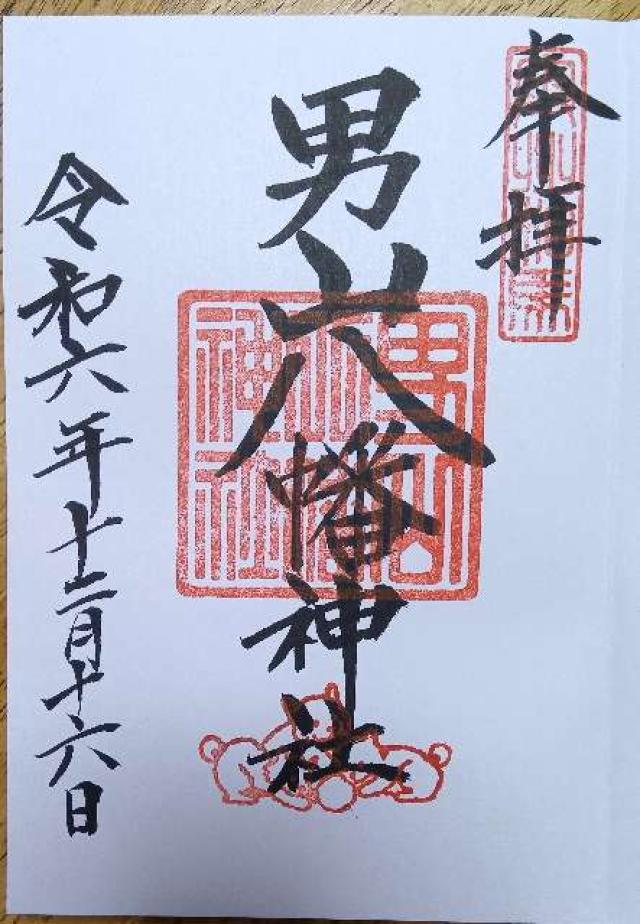 奉拝
男山八幡神社
令和六年十二月十六日